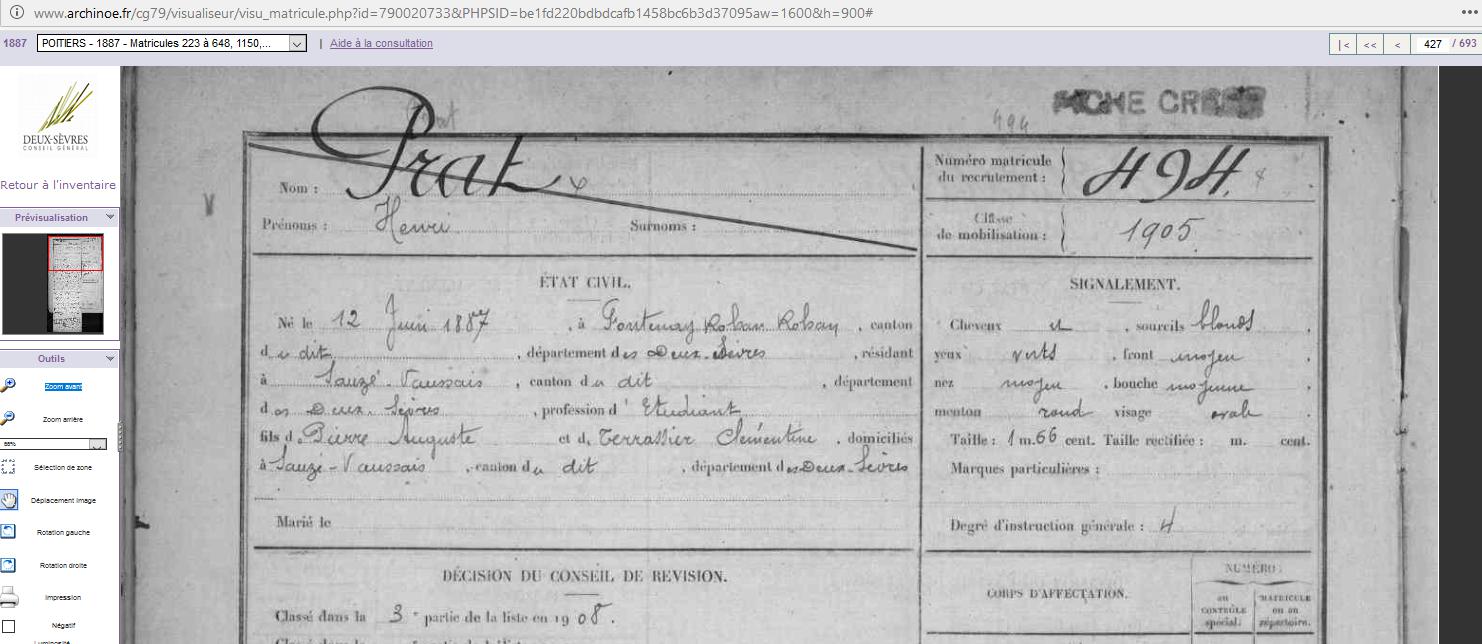 www.archinoe.fr/cg79/visualiseur/visu_matricule.php?id=790020733&PHPSID=be1fd220bdbdcafb1458bc6b3d37095aw=1600&h=900#
1887 POITIERS - 1887 - Matricules 223 à 648, 1150,... | Aide à la consultation |< << < 427 / 693
DEUX-SÈVRES
CONSEIL GÉNÉRAL
Retour à l'inventaire
Prévisualisation
Outils
Zoom avant
Zoom arrière
Sélection de zone
Déplacement image
Rotation gauche
Rotation droite
Impression
Négatif
Luminosité
494
Nom : Prat
Prénoms : Henri Surnoms :
Numéro matricule
du recrutement : 494
Classe
de mobilisation : 1905
ÉTAT CIVIL.
Né le 12 Juin 1887, à Fontenay Rohan Rohan, canton
du dit, département des Deux-Sèvres, résidant
à Sauzé-Vaussais, canton du dit, département
des Deux-Sèvres, profession d'Etudiant
fils d. Pierre Auguste et d. Terrassier Clémentine, domiciliés
à Sauzé-Vaussais, canton du dit, département des Deux-Sèvres
Marié le
SIGNALEMENT.
Cheveux et, sourcils blonds,
yeux verts, front moyen,
nez moyen, bouche moyenne,
menton rond visage ovale
Taille : 1 m. 66 cent. Taille rectifiée : m. cent.
Marques particulières :
Degré d'instruction générale : 4
DÉCISION DU CONSEIL DE REVISION.
Classé dans la 3e partie de la liste en 1908.
CORPS D'AFFECTATION.
NUMÉRO :
au
CONTRÔLE
spécial.
MATRICULE
ou au
répertoire.